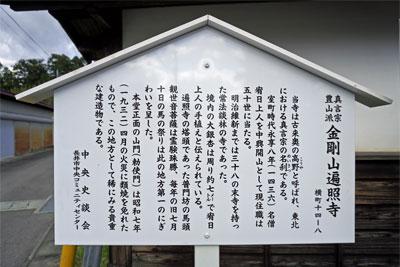 真言宗
豊山派
金剛山遍照寺
横町十四ー八
当寺は古来奥の高野と呼ばれ、東北
における真言宗の名刹である。
室町時代永享八年(一四三六)名僧
宥日上人を中興開山として現住職は
五十世に当たる。
明治維新までは三十八の末寺を持っ
た常法談林の寺であった。
境内の大銀杏は周り約七㍍で宥日
上人の手植えと伝えられている。
遍照寺の塔頭であった普門坊の馬頭
観世音菩薩は霊験殊勝、毎年の旧七月
十日の馬の祭りは此の地方第一のにぎ
わいを呈した。
本堂正面の山門(勅使門)は昭和七年
(一九三二)四月の火災に類焼を免れた
もので、この地方として稀にみる貴重
な建造物である。
中央史談会
長井市中央コミュニティセンター